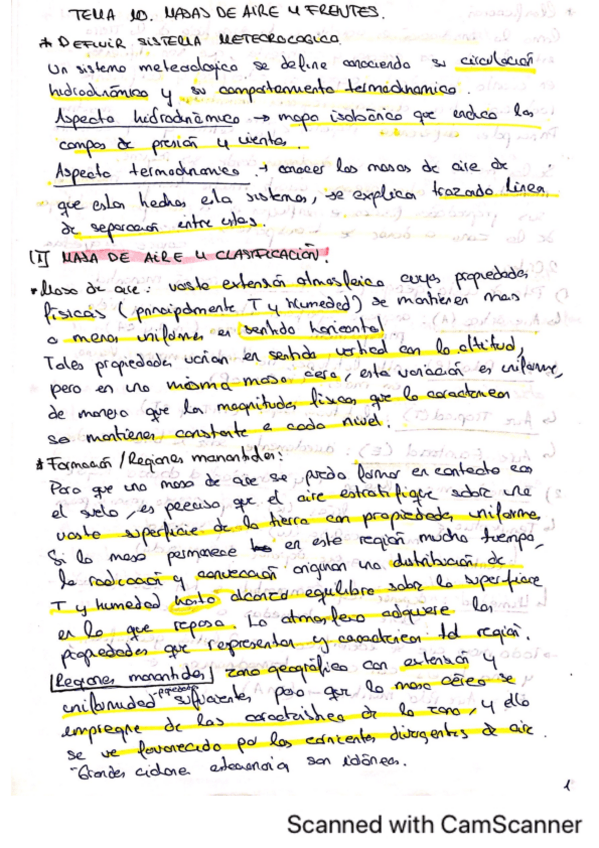 TEMA 10. MASAS DE AIRE Y FRENTES.
* DEFINIR SISTEMA METEOROLOGICO.
Un sistema meteorologico se define conociendo su circulación
hidrodnámica y su comportamiento termodnamico.
Aspecto hidrodnámico → mapa isobárico que indica los
campos de presión y vientos.
Aspecto termodnamico → conocer las masas de aire de
que estan hechos los sistemas, se explica trazando línea
de separación entre estas.
(I) MASA DE AIRE Y CLASIFICACIÓN.
* Masa de aire: vasta extensión atmosférica cuyas propiedades
físicas (principalmente T y humedad) se mantienen mas
o menos uniforme en sentido horizontal
Tales propiedades varían en sentido vertical con la altitud,
pero en una misma masa aerea, esta variación es uniforme,
de manera que las magnitudes físicas que la caracterizan
se mantienen constante a cada nivel.
* Formación / Regiones manantiales:
Para que una masa de aire se pueda formar en contacto con
el suelo, es preciso, que el aire estratifique sobre una
vasta superficie de la tierra con propiedades uniforme,
Si la masa permanece en esta región mucho tiempo,
la radiación y convección originan una distribución de
T y humedad hasta alcanzar equilibre sobre la superficie
en la que reposa. La atmosfera adquiere las
propiedades que representan y caracterizan tal región.
Regiones manantiales zona geográfica con extensión y
uniformidad propiedades suficientes, para que la masa aérea se
impregne de las características de la zona, y ello
se ve favorecido por las corrientes divergentes de aire.
- Grandes ciclones estacionarios son idóneos.
1
Scanned with CamScanner